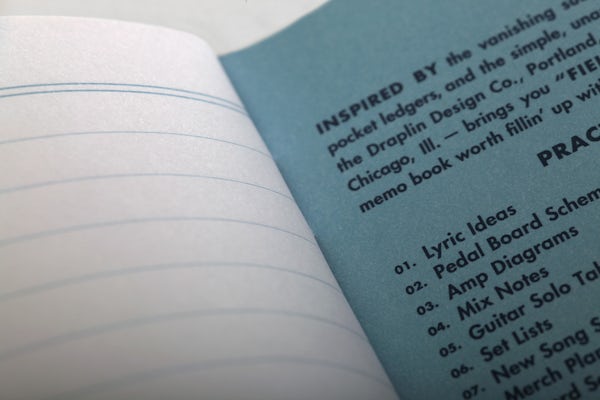 INSPIRED BY the vanishing
pocket ledgers, and the simple,
the Draplin Design Co., Portland,
Chicago, Ill. — brings you "FIEL
memo book worth fillin' up
PRAC
01. Lyric Ideas
02. Pedal Board Schem
03. Amp Diagrams
04. Mix Notes
05. Guitar Solo
06. Set Lists
07. New Song
Merch